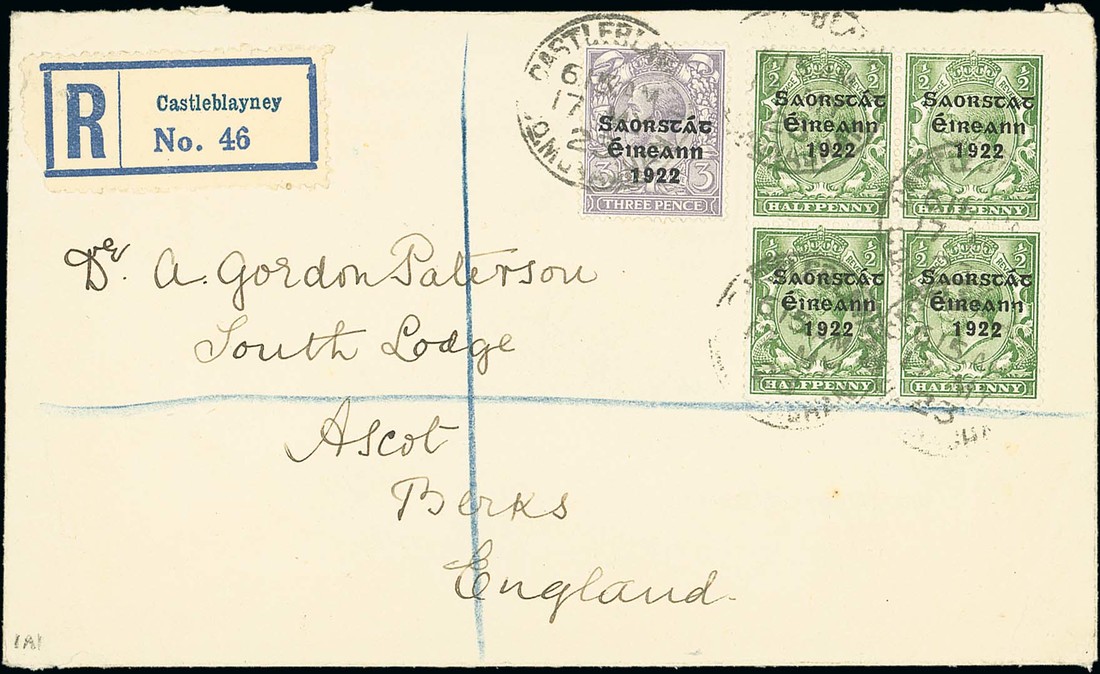 R
Castleblayney
No. 46
SAORSTÁT
ÉIREANN
1922
3 3
THREE PENCE
½ ½
SAORSTÁT
ÉIREANN
1922
HALFPENNY
½ ½
SAORSTÁT
ÉIREANN
1922
HALFPENNY
½ ½
SAORSTÁT
ÉIREANN
1922
HALFPENNY
½ ½
SAORSTÁT
ÉIREANN
1922
HALFPENNY
Dr. A. Gordon Paterson
South Lodge
Ascot
Berks
England.